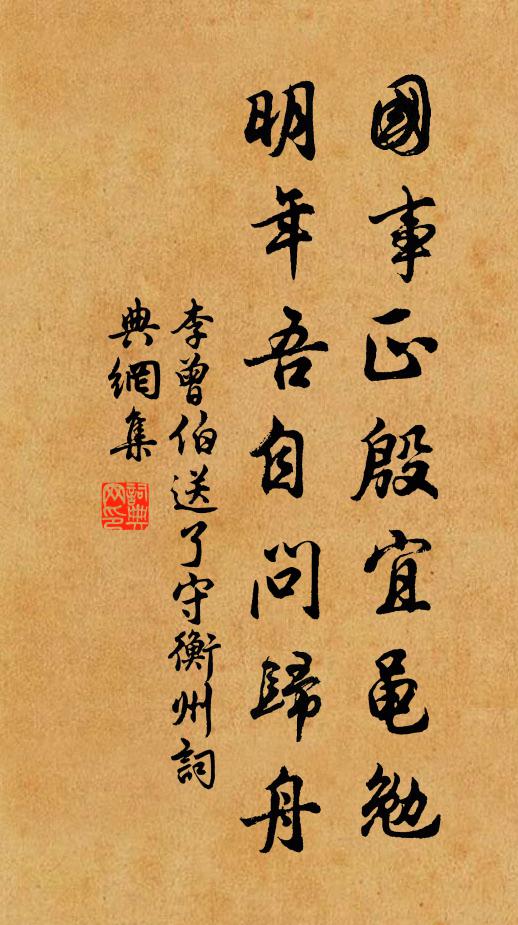 國事正殷宜黽勉
明年吾自問歸舟
李曾伯送了守衡州詞
典網集
詞典
网印